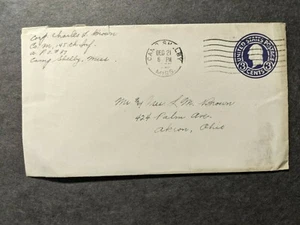 Corp Charles S. Brown
Co. M, 145th Inf.
A.P.O. # 37
Camp Shelby, Miss.
CAMP SHELBY
DEC 21
6 PM
MISS.
UNITED STATES POSTAGE
3 CENTS 3
Mr & Mrs L. M. Brown
424 Palm Ave.
Akron, Ohio